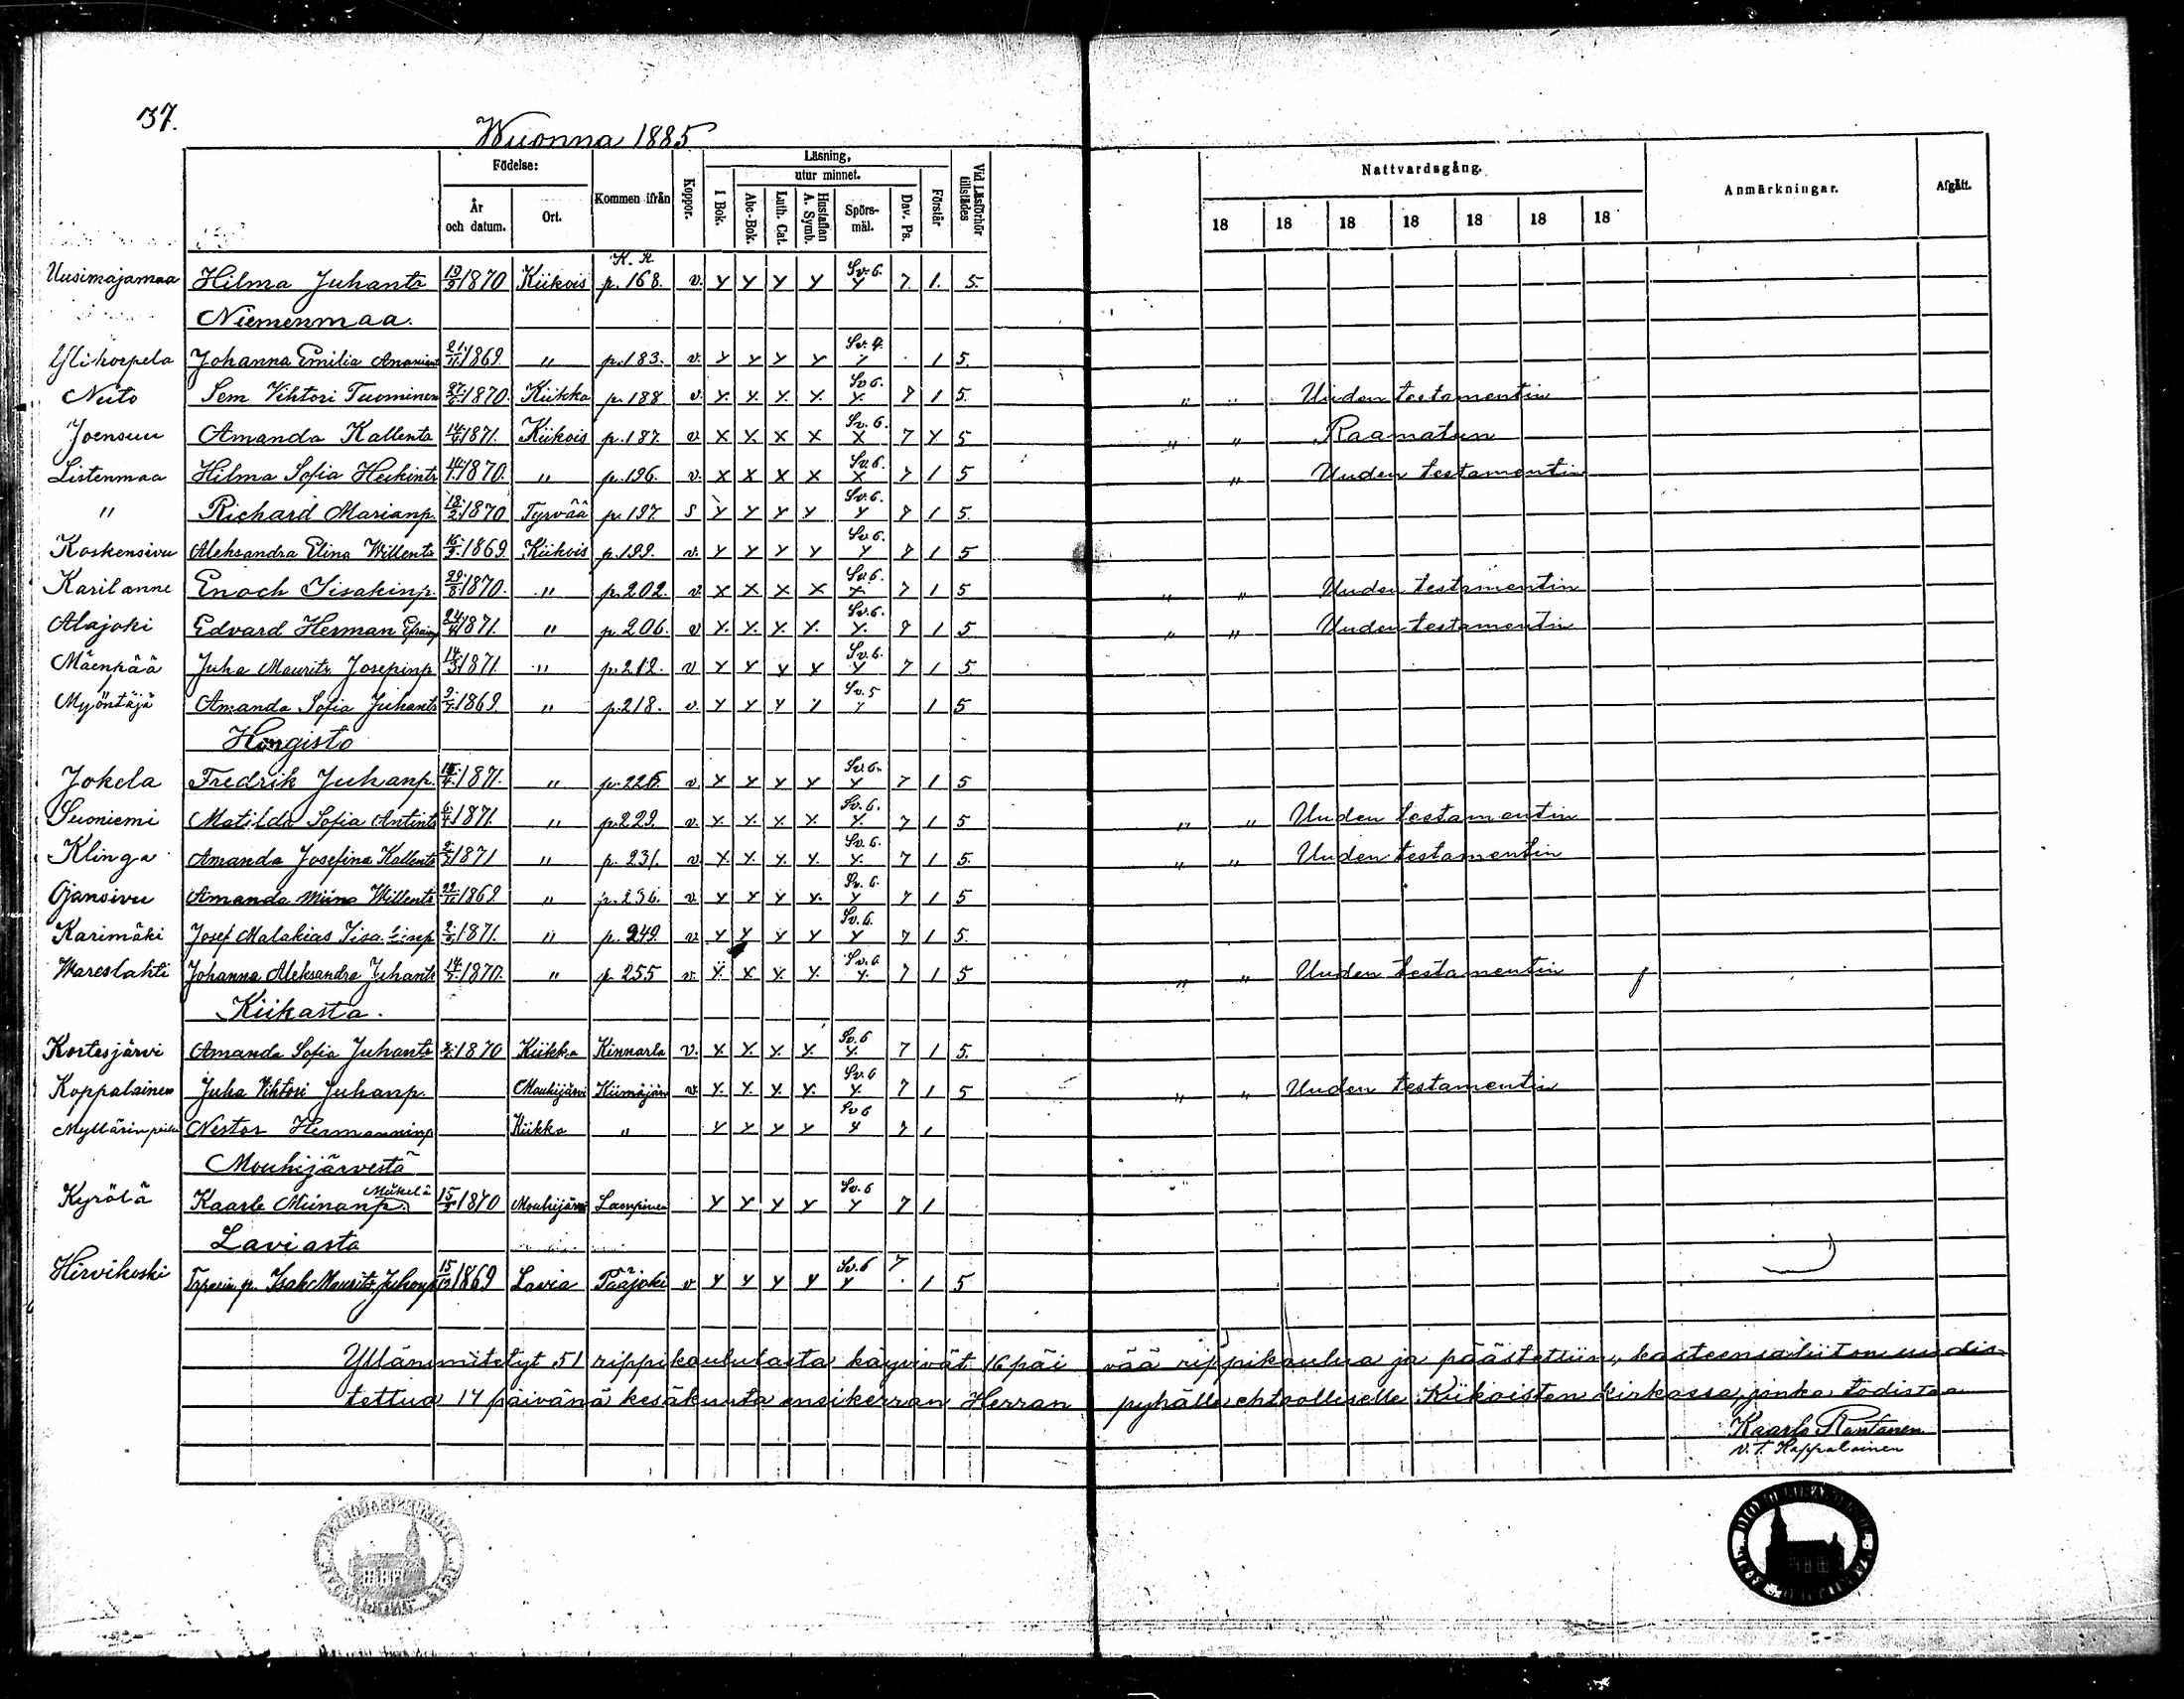 37.
Wuonna 1885
Födelse: Kommen ifrån Koppor. Läsning, Vid Läsförhör tillstädes Nattvardsgång. Anmärkningar. Afgått.
År och datum. Ort. I Bok. utur minnet. Förstår
Abc-Bok. Luth. Cat. Hustaflan A. Symb. Spörs-mål. Dav. Ps. 18 18 18 18 18 18 18
Uusimajamaa Hilma Juhantr 1870 Kiikois K. R. p. 168. v. y y y y Sv. 6. y 7 1. 5.
Niemenmaa.
Johanna Emilia 21/11 1869. " p. 183. v. y y y y Sv. 4. y 1 5.
Sem Vihtori Tuominen 1870. Kiikka p. 188 v. y. y. y. y. Sv 6. y. 7 1 5. " " Uuden testamentin
Joensuu Amanda Kallentr 1871. Kiikois p. 187. v. x x x x Sv. 6. x 7 y 5 " " Raamatun
Listenmaa Hilma Sofia Heikintr 1870. " p. 196. v. x x x x Sv. 6. x 7 1 5 " Uuden testamentin
" Richard Marianp. 18/2 1870 Tyrvää p. 197 s y y y y Sv. 6. y 7 1 5.
Koskensivu Aleksandra Elina Willentr 1869. Kiikois p. 199. v. y y y y Sv. 6. y 7 1 5
Karilanne Enoch Iisakinp. 29/8 1870. " p. 202. v. x x x x Sv. 6. x 7 1 5 " " Uuden testamentin
Alajoki Edvard Herman 24/4 1871. " p. 206. v y. y. y. y. Sv. 6. y. 7 1 5 " " Uuden testamentin
Mäenpää Juha Maurits Josepinp 14/3 1871 " p. 212. v y y y y Sv. 6. y 7 1 5.
Myöntäjä Amanda Sofia Juhantr 1869. " p. 218. v. y y y y Sv. 5 y 1 5
Hongisto
Jokela Fredrik Juhanp. 1871. " v. y y y y Sv. 6. y 7 1 5
Suoniemi Matilda Sofia Antintr 6/4 1871. " p. 229. v. y. y. y. y. Sv. 6. y. 7 1 5 " " Uuden testamentin
Klinga Amanda Josefina Kallentr 1871 " p. 231. v. y. y. y. y. Sv. 6. y. 7 1 5. " " Uuden testamentin
Ojansivu Amanda Miina Willentr 1869 " p. 236. v. y y y y. Sv. 6. y 7 1 5
Karimäki Josef Malakias 1871. " p. 249. v. y y y y Sv. 6. y 7 1 5.
Wareslahti Johanna Aleksandra Juhantr 1870. " p. 255 v. y. x y. y. Sv. 6 y. 7 1 5 " " Uuden testamentin
Kiikasta.
Kortesjärvi Amanda Sofia Juhantr 1870 Kiikka Kinnarla v. y. y. y. y. Sv. 6 y. 7 1 5.
Koppalainen Juha Vihtori Juhanp. Mouhijärvi v. y. y. y. y. Sv. 6 y. 7 1 5 " " Uuden testamentin
Nestor Hermanninp Kiikka " y y y y Sv 6 y 7 1
Mouhijärvestä
Kyrölä Kaarle Miinanp. Mäkelä 1870 Mouhijärvi Lampinen y y y y Sv. 6 y 7 1
Laviasta
Hirvikoski Isak Maurits Juhonp 1869 Lavia Pääjoki v y y y y Sv. 6 y 7 1 5
Yllänimitetyt 51 rippikoululaista käyvivät 16 päivää rippikoulua ja päästettiin, kasteensa liiton uudis-
tettua 14 päivänä kesäkuuta ensikerran Herran pyhälle ehtoolliselle Kiikoisten kirkossa, jonka todistaa
Kaarlo Rantanen
v. t. Kappalainen